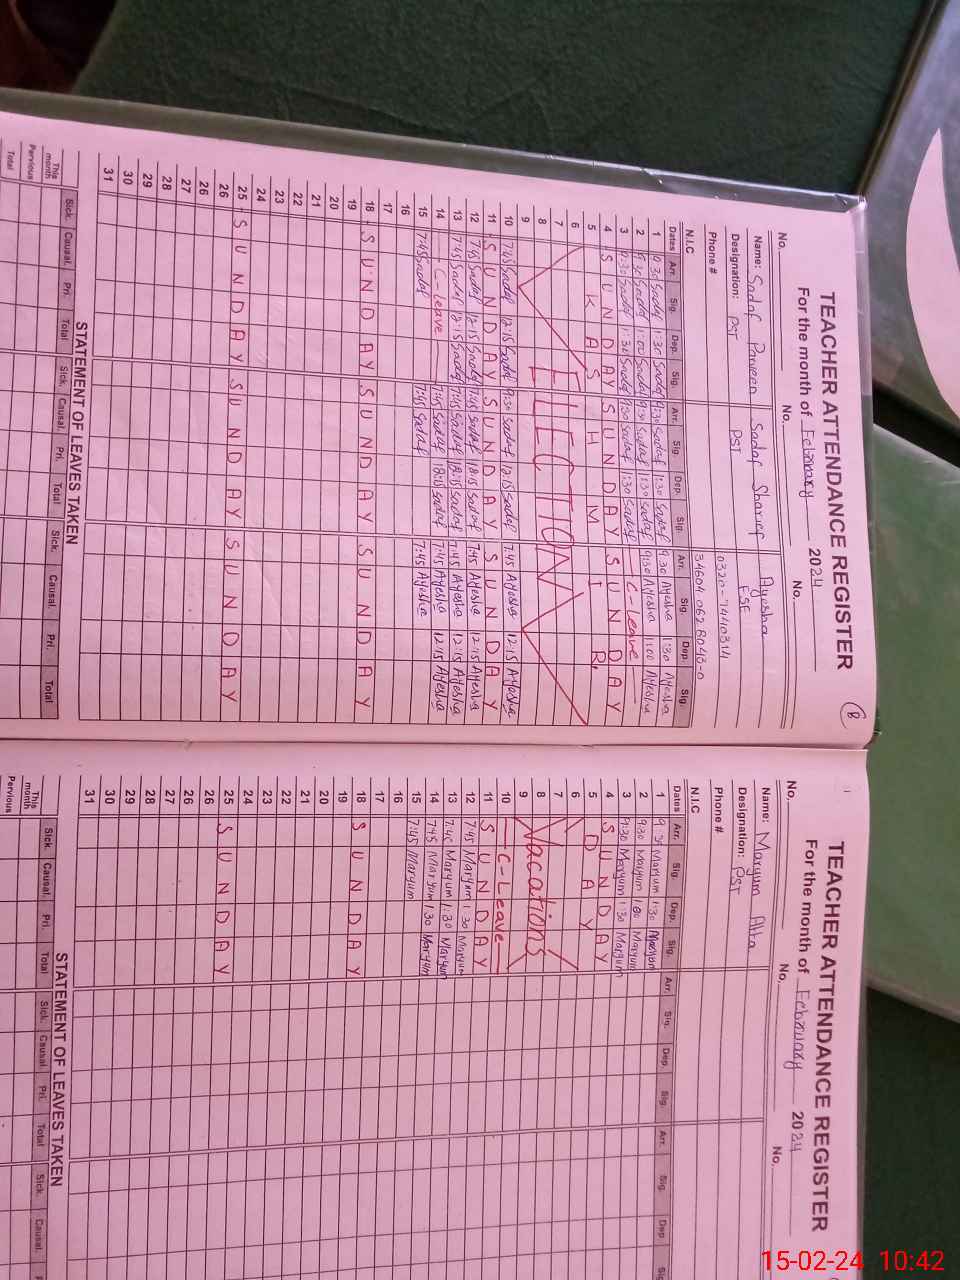 TEACHER ATTENDANCE REGISTER
For the month of Februaray 2024
B
No. No. No.
Name: Sadaf Parveen Sadaf Sharief Ayesha
Designation: PST PST ESE
Phone # 0320-7440314
N.I.C 34604 062 8043-0
Dates Arr. Sig. Dep. Sig. Arr. Sig. Dep. Sig. Arr. Sig. Dep. Sig.
1 9:30 Sadaf 1:30 Sadaf 9:30 Sadaf 1:30 Sadaf 9:30 Ayesha 1:30 Ayesha
2 9:30 Sadaf 1:00 Sadaf 9:30 Sadaf 1:30 Sadaf 9:30 Ayesha 1:00 Ayesha
3 9:30 Sadaf 1:30 Sadaf 9:30 Sadaf 1:30 Sadaf C-Leave
4 SUNDAY SUNDAY SUNDAY
5 KASHMIR
6
7 ELECTION
8
9
10 7:45 Sadaf 12:15 Sadaf 9:30 Sadaf 12:15 Sadaf 7:45 Ayesha 12:15 Ayesha
11 SUNDAY SUNDAY SUNDAY
12 7:45 Sadaf 12:15 Sadaf 7:45 Sadaf 18:15 Sadaf 7:45 Ayesha 12:15 Ayesha
13 7:45 Sadaf 12:15 Sadaf 7:45 Sadaf 18:15 Sadaf 7:45 Ayesha 12:15 Ayesha
14 C-Leave 7:45 Sadaf 18:15 Sadaf 7:45 Ayesha 12:15 Ayesha
15 7:45 Sadaf 7:45 Sadaf 7:45 Ayesha
16
17
18 SUNDAY SUNDAY SUNDAY
19
20
21
22
23
24
25 SUNDAY SUNDAY SUNDAY
26
26
27
28
29
30
31
STATEMENT OF LEAVES TAKEN
Sick. Causal. Pri. Total Sick. Causal. Pri. Total Sick. Causal. Pri. Total
This month
Pervious
Total
TEACHER ATTENDANCE REGISTER
For the month of Februaray 2024
No. No. No.
Name: Maryum Atta
Designation: PST
Phone #
N.I.C
Dates Arr. Sig. Dep. Sig. Arr. Sig. Dep. Sig. Arr. Sig. Dep Sig.
1 9:30 Maryum 1:30 Maryum
2 9:30 Maryum 1:00 Maryum
3 9:30 Maryum 1:30 Maryum
4 SUNDAY
5 DAY
6
7
8 Vacations
9
10 C-Leave
11 SUNDAY
12 7:45 Maryum 1:30 Maryum
13 7:45 Maryum 1:30 Maryum
14 7:45 Maryum 1:30 Maryum
15 7:45 Maryum
16
17
18 SUNDAY
19
20
21
22
23
24
25 SUNDAY
26
26
27
28
29
30
31
STATEMENT OF LEAVES TAKEN
Sick. Causal. Pri. Total Sick. Causal. Pri. Total Sick. Causal.
This month
Pervious
15-02-24 10:42